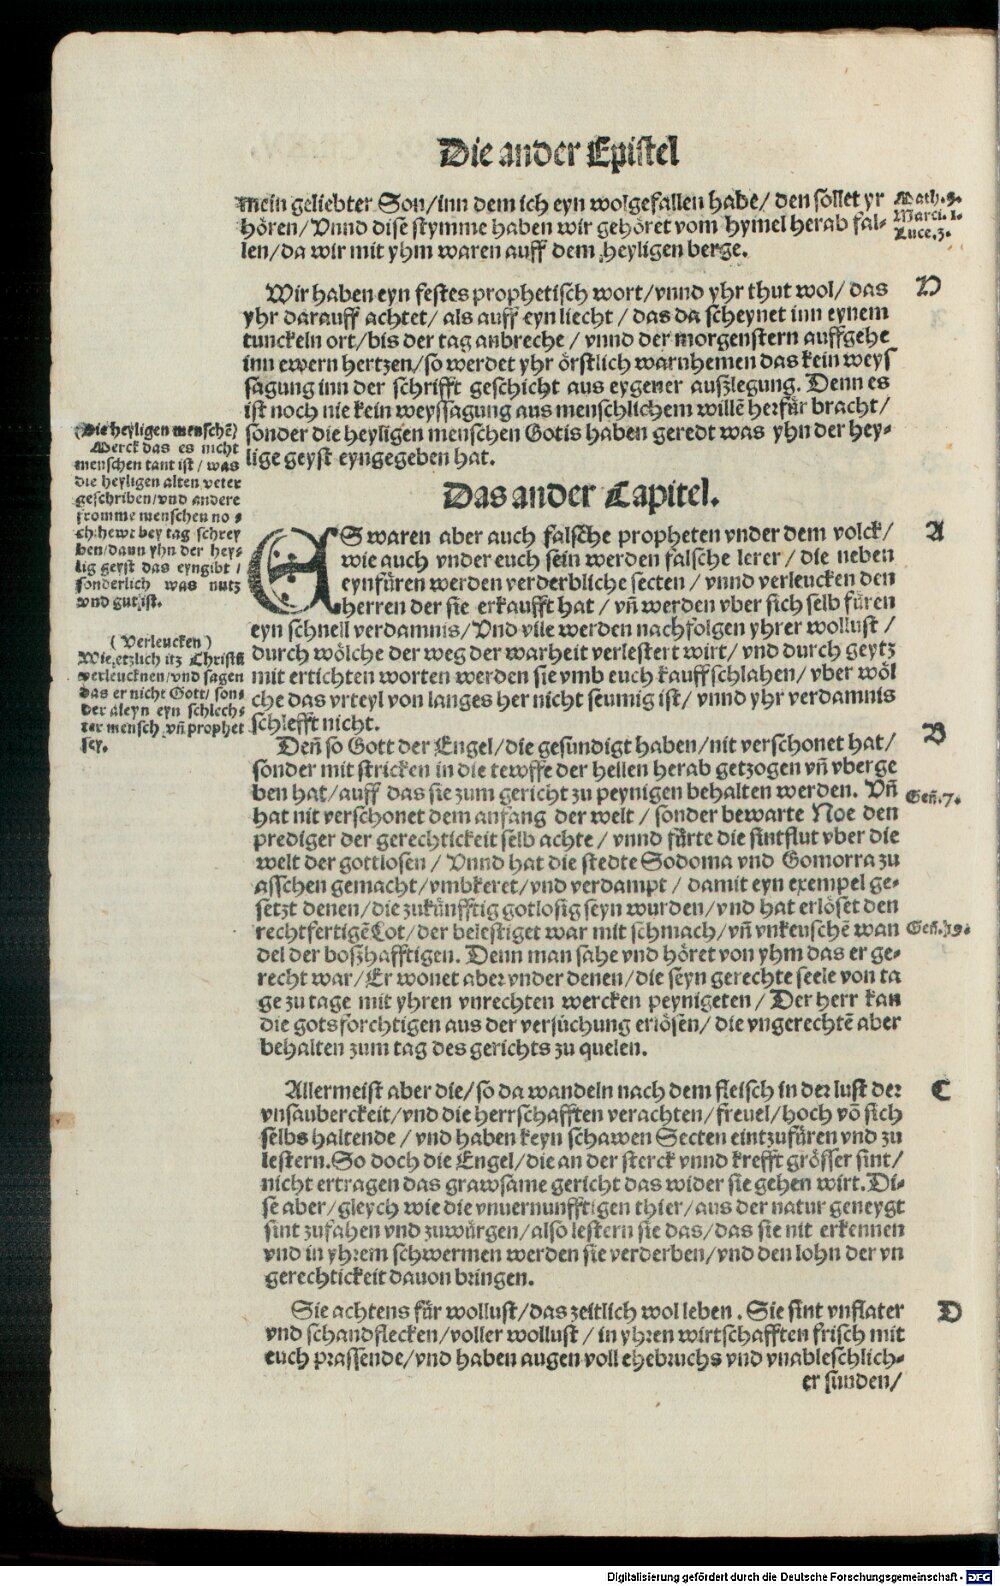 Die ander Epistel
mein geliebter Son/inn dem ich eyn wolgefallen habe/ den söllet yr
hören/Vnnd dise stymme haben wir gehöret vom hymel herab fal-
len/da wir mit yhm waren auff dem heyligen berge.
Math.3.
Marci.1.
Luce.3.
Wir haben eyn festes prophetisch wort/vnnd yhr thut wol/ das
yhr darauff achtet/ als auff eyn liecht / das da scheynet inn eynem
tunckeln ort/bis der tag anbreche / vnnd der morgenstern auffgehe
inn ewern hertzen/so werdet yhr örstlich warnhemen das kein weys
sagung inn der schrifft geschicht aus eygener außlegung. Denn es
ist noch nie kein weyssagung aus menschlichem willē herfür bracht/
sonder die heyligen menschen Gotis haben geredt was yhn der hey-
lige geyst eyngegeben hat.
D
(Die heyligen menschē)
Merck das es nicht
menschen tant ist / was
die heyligen alten veter
geschriben/vnd andere
fromme menschen no-
ch hewt bey tag schrey
ben/dann yhn der hey-
lig geyst das eyngibt /
sonderlich was nutz
vnd gut ist.
Das ander Capitel.
ES waren aber auch falsche propheten vnder dem volck/
wie auch vnder euch sein werden falsche lerer / die neben
eynfüren werden verderbliche secten / vnnd verleucken den
herren der sie erkaufft hat / vñ werden vber sich selb füren
eyn schnell verdamnis/Vnd vile werden nachfolgen yhrer wollust /
durch wölche der weg der warheit verlestert wirt/ vnd durch geytz
mit ertichten worten werden sie vmb euch kauffschlahen/ vber wöl
che das vrteyl von langes her nicht seumig ist/ vnnd yhr verdamnis
schlefft nicht.
A
(Verleucken)
Wie etzlich itz Christū
verleucknen/vnd sagen
das er nicht Gott/ son-
der aleyn eyn schlech-
ter mensch vñ prophet
sey.
Deñ so Gott der Engel/die gesündigt haben/nit verschonet hat/
sonder mit stricken in die tewffe der hellen herab getzogen vñ vberge
ben hat/auff das sie zum gericht zu peynigen behalten werden. Vñ
hat nit verschonet dem anfang der welt / sonder bewarte Noe den
prediger der gerechtickeit selb achte / vnnd fürte die sintflut vber die
welt der gottlosen / Vnnd hat die stedte Sodoma vnd Gomorra zu
asschen gemacht/vmbkeret/vnd verdampt / damit eyn exempel ge-
setzt denen/die zukünfftig gotlosig seyn wurden/vnd hat erlöset den
rechtfertigē Lot/der belestiget war mit schmach/vñ vnkeuschē wan
del der boßhafftigen. Denn man sahe vnd höret von yhm das er ge-
recht war/Er wonet aber vnder denen/die seyn gerechte seele von ta
ge zu tage mit yhren vnrechten wercken peynigeten / Der herr kan
die gotsforchtigen aus der versuchung erlösen/ die vngerechtē aber
behalten zum tag des gerichts zu quelen.
B
Geñ.7.
Geñ.19.
Allermeist aber die/so da wandeln nach dem fleisch in der lust der
vnsauberckeit/vnd die herrschafften verachten/freuel/hoch vō sich
selbs haltende / vnd haben keyn schawen Secten eintzufüren vnd zu
lestern.So doch die Engel/die an der sterck vnnd krefft grösser sint/
nicht ertragen das grawsame gericht das wider sie gehen wirt.Di-
se aber/gleych wie die vnuernunfftigen thier/aus der natur geneygt
sint zufahen vnd zuwürgen/also lestern sie das/das sie nit erkennen
vnd in yhrem schwermen werden sie verderben/vnd den lohn der vn
gerechtickeit dauon bringen.
C
Sie achtens für wollust/das zeitlich wolleben. Sie sint vnflater
vnd schandflecken/voller wollust / in yhren wirtschafften frisch mit
euch prassende/vnd haben augen voll ehebruchs vnd vnableschlich-
er sunden/
D
Digitalisierung gefördert durch die Deutsche Forschungsgemeinschaft - DFG